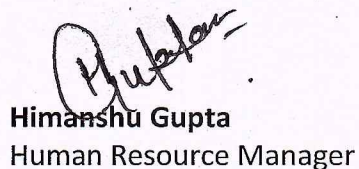 Himanshu Gupta
Human Resource Manager